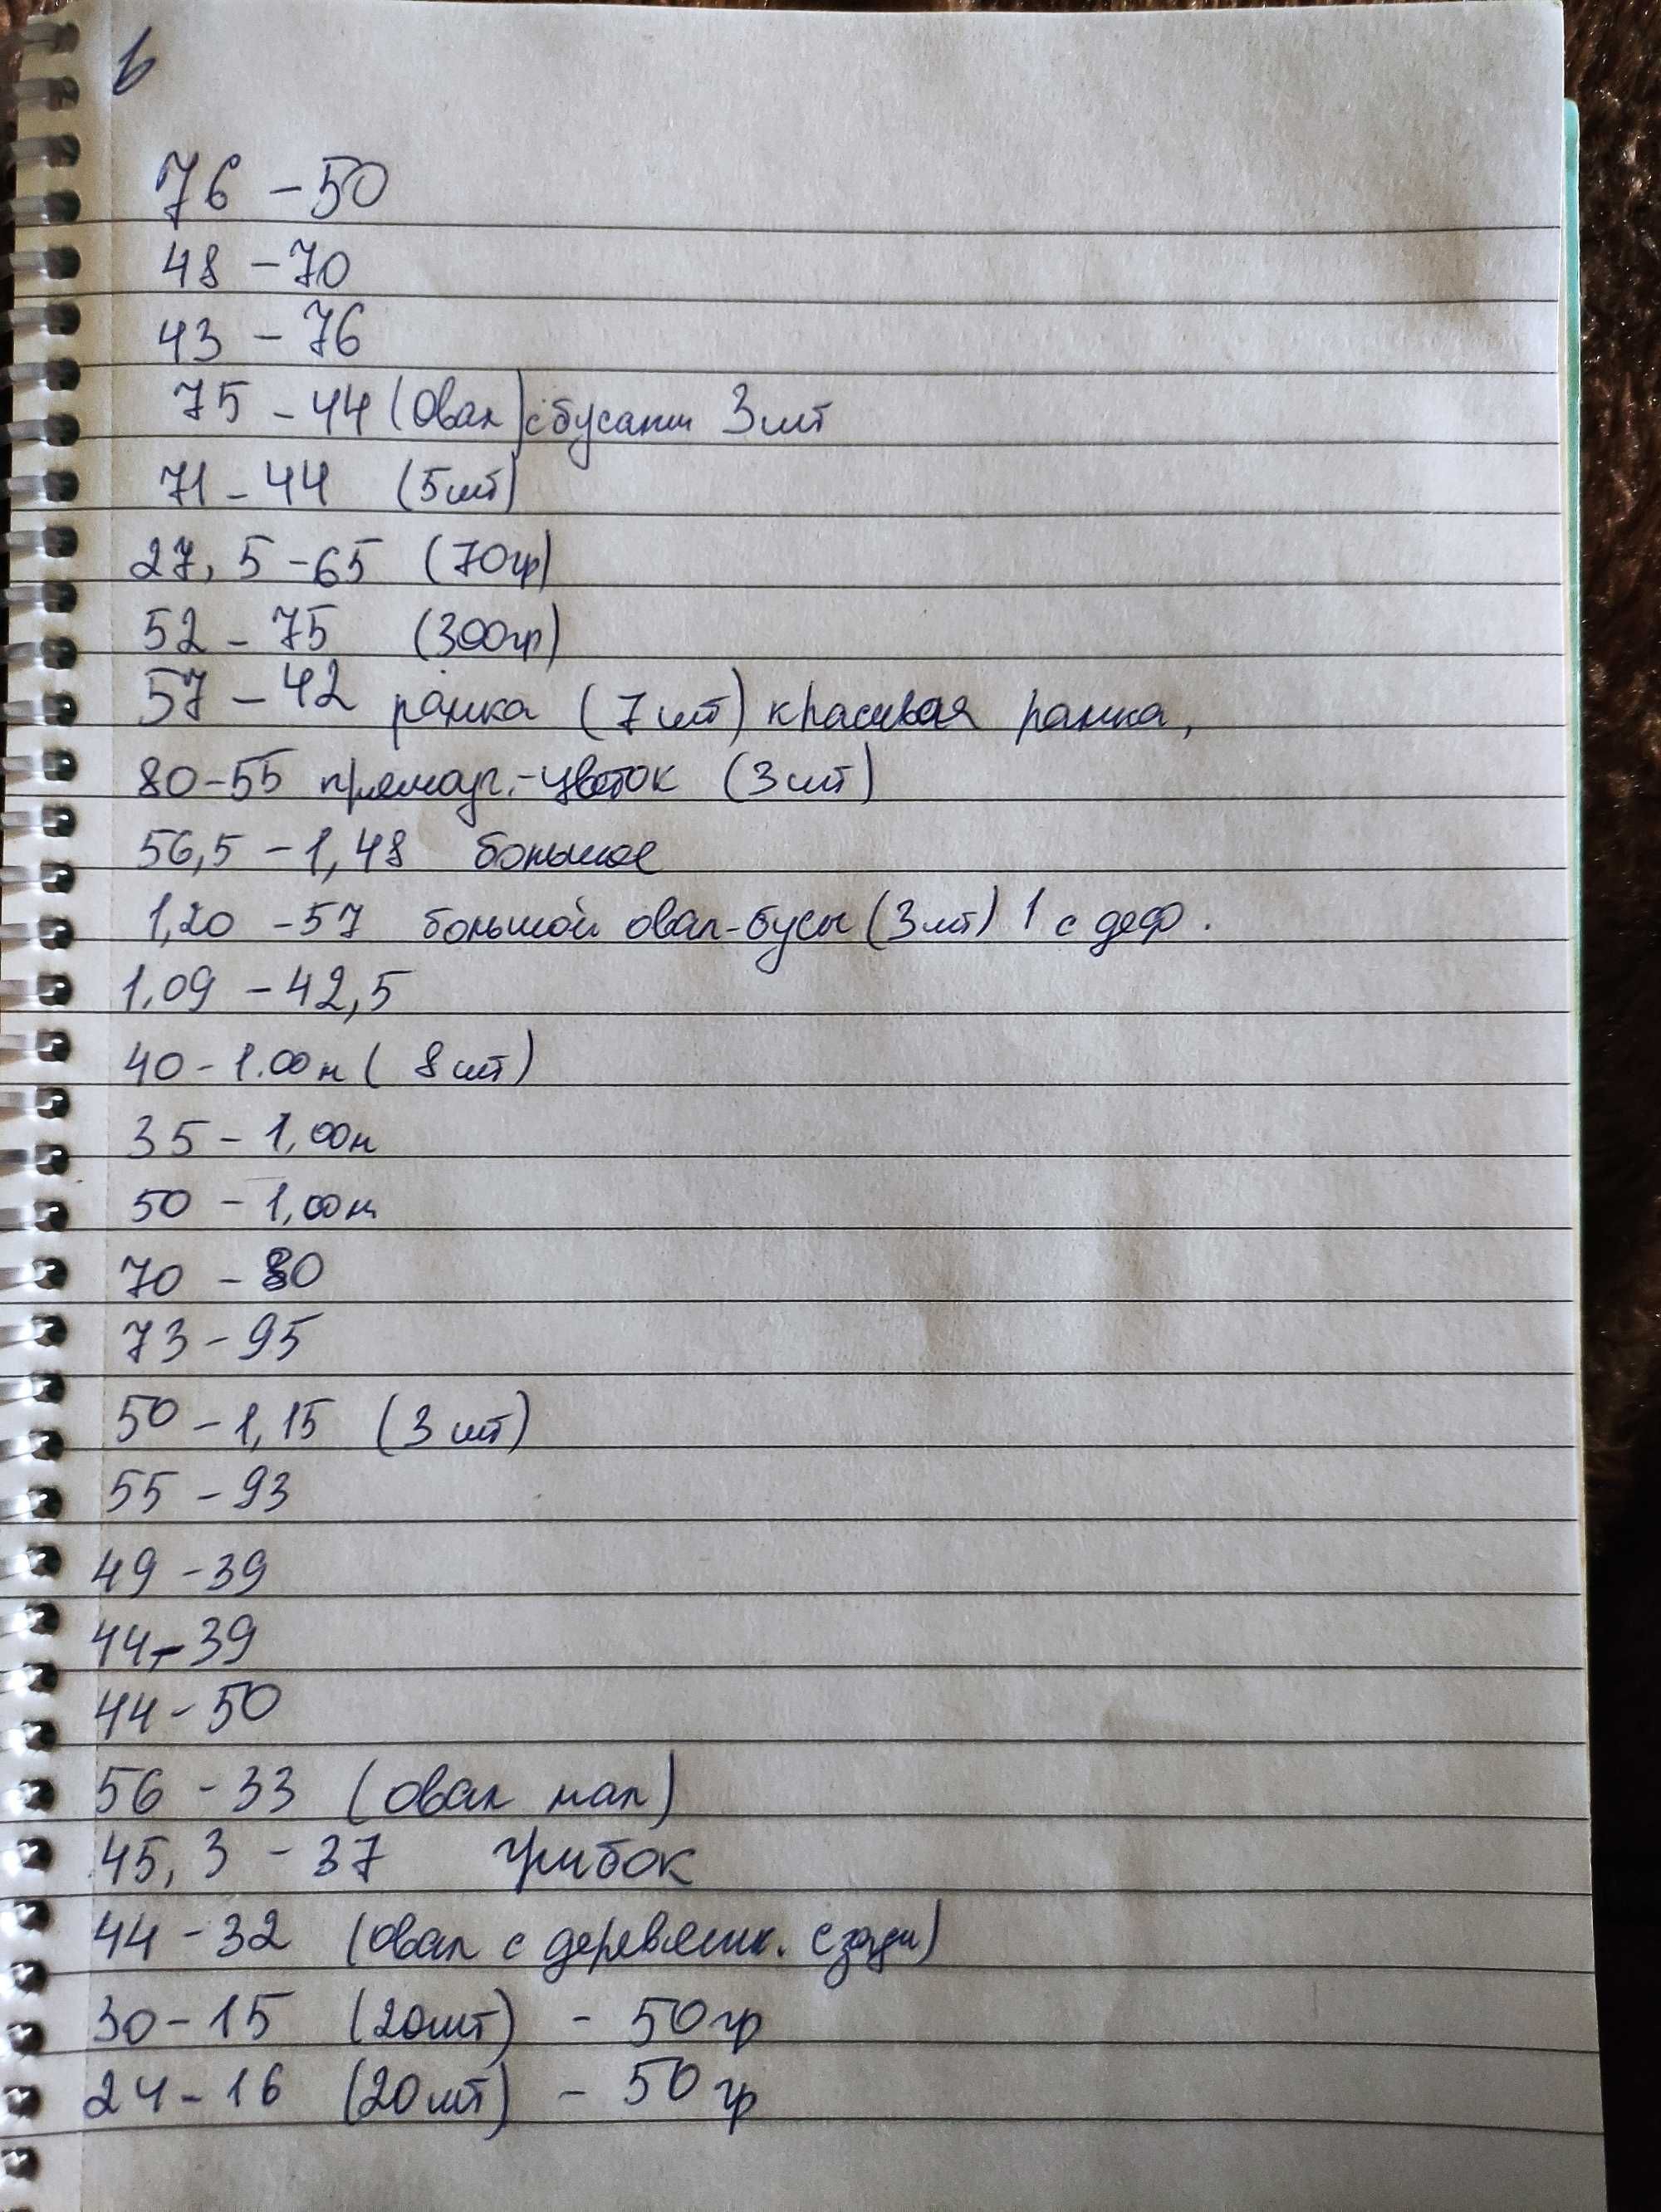 76 - 50
48 - 70
43 - 76
75 - 44 (овал) с бусами 3 шт
71 - 44 (5 шт)
27,5 - 65 (70гр)
52 - 75 (300гр)
57 - 42 рамка (7 шт) красивая рамка,
80 - 55 прямоуг.-цветок (3 шт)
56,5 - 1,48 большое
1,20 - 57 большой овал-бусы (3 шт) 1 с деф.
1.09 - 42,5
40 - 1.00м (8 шт)
35 - 1,00м
50 - 1,00м
70 - 80
73 - 95
50 - 1,15 (3 шт)
55 - 93
49 - 39
44 - 39
44 - 50
56 - 33 (овал мал)
45,3 - 37 грибок
44 - 32 (овал с деревяшк. сзади)
30 - 15 (20шт) - 50гр
24 - 16 (20шт) - 50гр